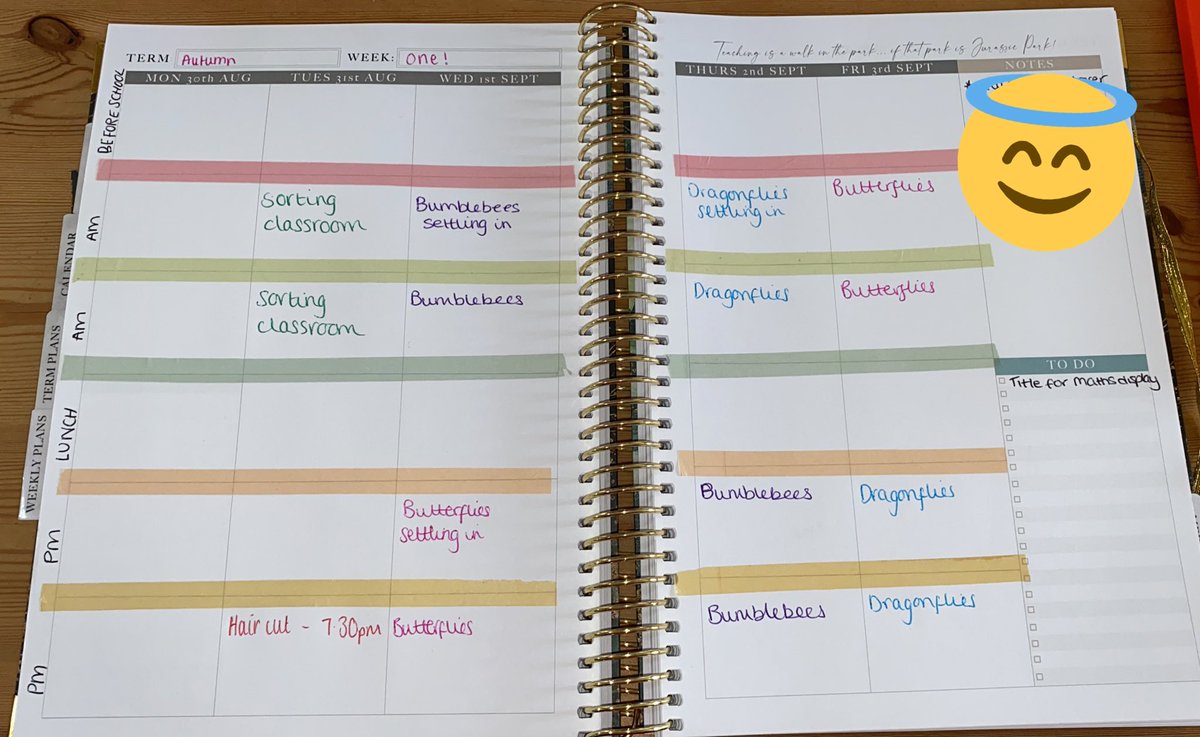 TERM Autumn WEEK: One!
MON 30TH AUG TUES 31ST AUG WED 1ST SEPT
BEFORE SCHOOL
AM
Sorting
classroom
Bumblebees
settling in
AM
Sorting
classroom
Bumblebees
LUNCH
PM
Butterflies
settling in
PM
Hair cut - 7.30pm
Butterflies
CALENDAR
TERM PLANS
WEEKLY PLANS
Teaching is a walk in the park... if that park is Jurassic Park!
THURS 2ND SEPT FRI 3RD SEPT NOTES
Dragonflies
settling in
Butterflies
Dragonflies
Butterflies
Bumblebees
Dragonflies
Bumblebees
Dragonflies
TO DO
Title for maths display